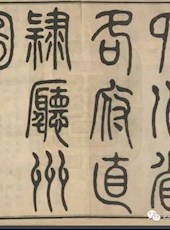 十八省
各府直
隸廳州
圖